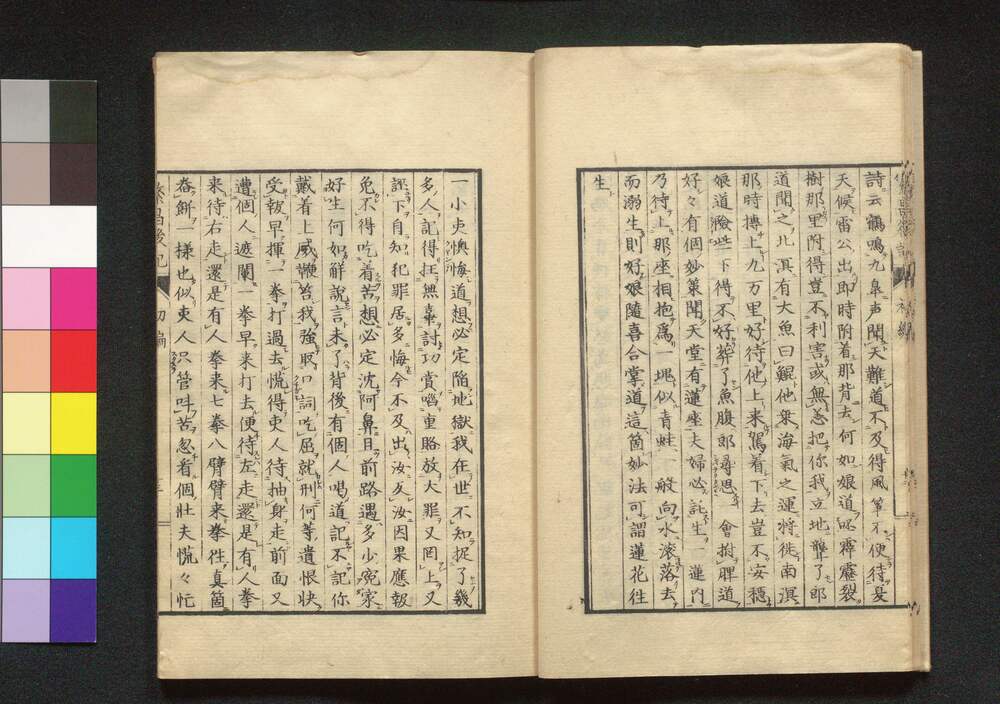 詩云鶴鳴九皐声聞天難道不及得風箏不便待夏
天候雷公出即時附着那背去何如娘道咚霹靂裂
樹那里附得豈不利害或無恙把你我立地聾了郎
道聞之北溟有大魚曰鯤他乗海氣之運將徙南溟
那時搏上九万里好待他上来駕着下去豈不安穩
娘道瞼些下得不好葬了魚腹郎尋思 會拊脾道
好々有個妙策聞天堂有蓮座夫婦必託生一蓮内
乃待上那座相抱為一塊似青蛙一般向水滚落去
而溺生則好娘隨喜合掌道這箇妙法可謂蓮花往
生
一小吏懊悔道想必定陥地獄我在世不知捉了幾
多人記得抂無辜討功賞啗重賂放大罪又罔上又
誣下自知犯罪居多悔今不及出汝反汝因果應報
免不得吃着苦想必定沈阿鼻且前路遇多少寃家
好生何如觧說言未了背後有個人喝道記不記你
戴着上威鞭笞我強取口詞吃屈就刑何等遺恨快
受報早揮一拳打過去慌得吏人待抽身走前面又
遭個人遮闌一拳早来打去便待左走還是有人拳
来待右走還是有人拳来七拳八臂臂来拳徃真箇
舂餅一様也似吏人只管呌苦忽看個壮夫慌々忙
繁昌後記 初編